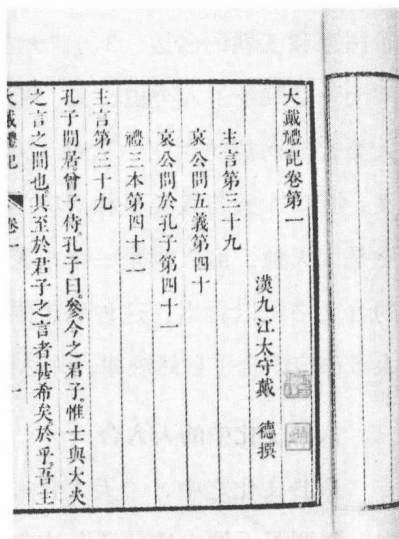 大戴禮記卷第一
漢九江太守戴　德撰
主言第三十九
哀公問五義第四十
哀公問於孔子第四十一
禮三本第四十二
主言第三十九
孔子閒居曾子侍孔子曰參今之君子惟士與大夫
之言之間也其至於君子之言者甚希矣於乎吾主
大戴禮記　卷一